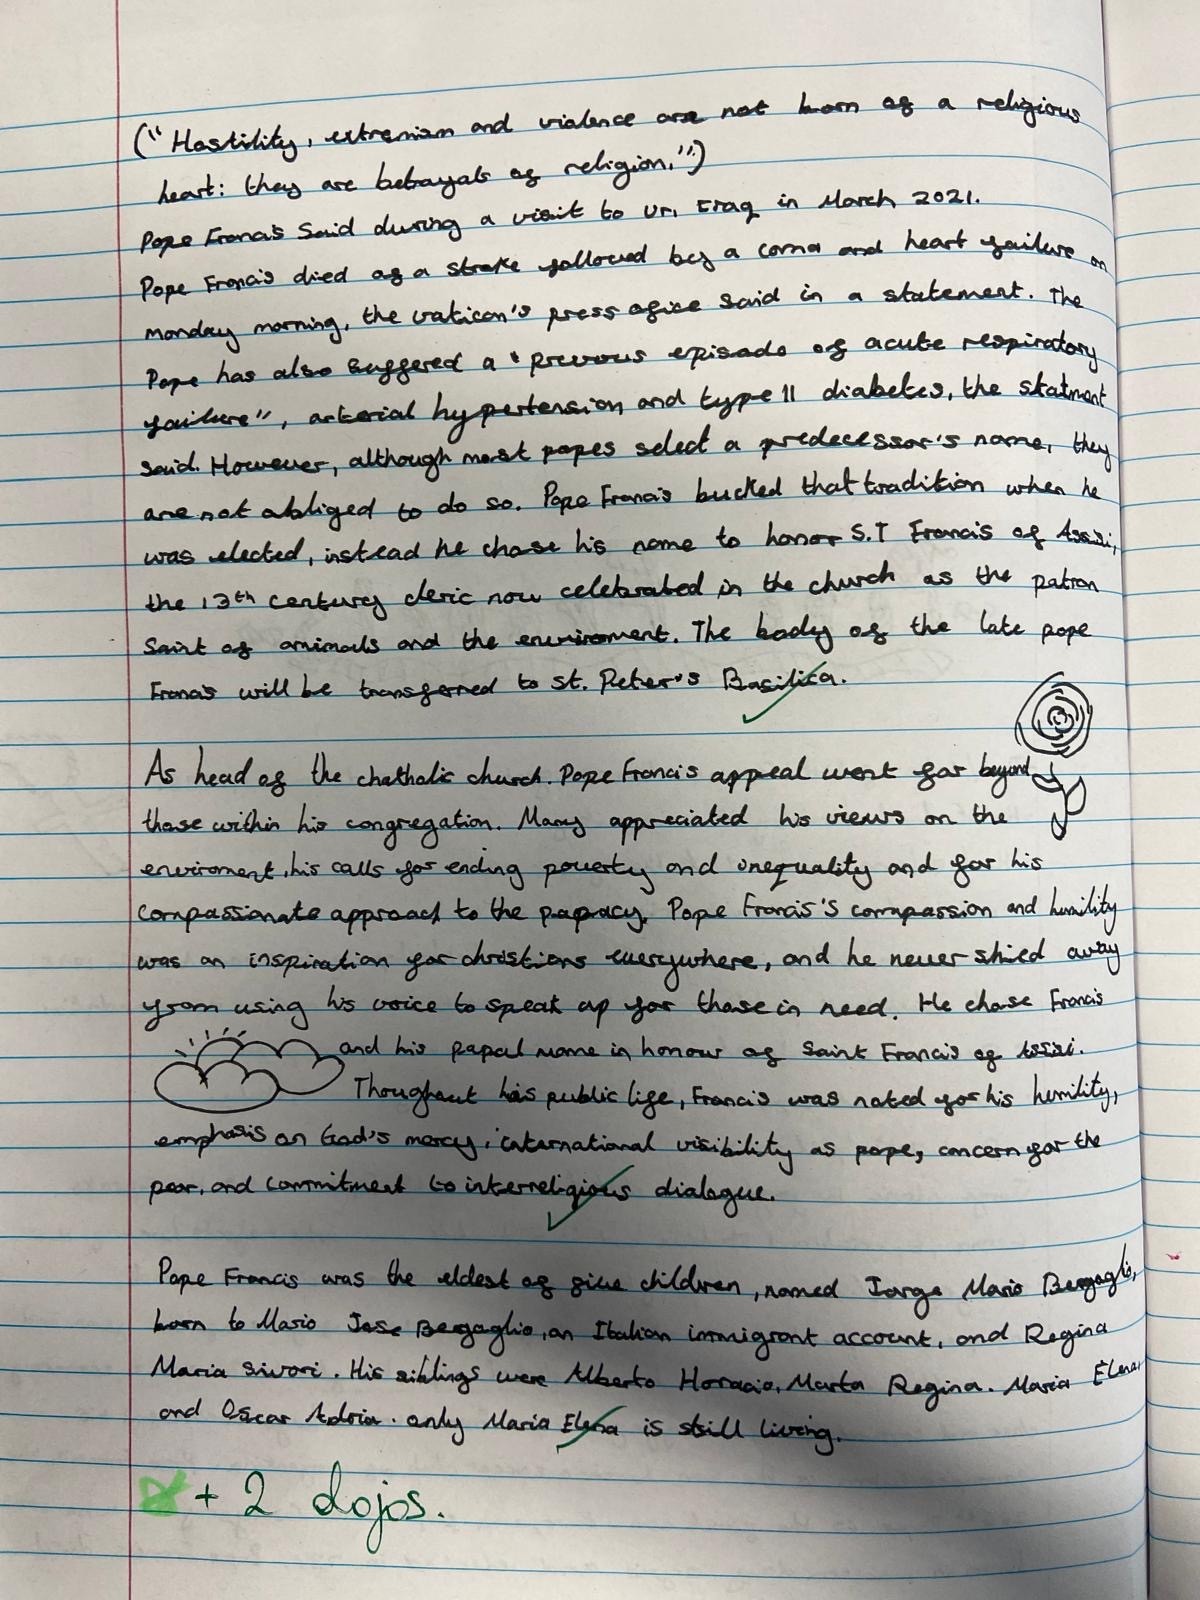 ("Hostility, extremism and violence are not born of a religious
heart: they are betrayals of religion.")
Pope Francis Said during a visit to Ur, Iraq in March 2021.
Pope Francis died of a stroke followed by a coma and heart failure on
monday morning, the vatican's press ofice said in a statement. The
Pope has also suffered a "previous episode of acute respiratory
failure", arterial hypertension and type II diabetes, the statment
said. However, although most popes select a predecessor's name, they
are not obliged to do so. Pope Francis bucked that tradition when he
was elected, instead he chose his name to honor S.T Francis of Assisi,
the 13th century cleric now celebrated in the church as the patron
Saint of animals and the enviroment. The body of the late pope
Francis will be transferred to St. Peter's Basilica.
As head of the chatholic church. Pope Francis appeal went far beyond
those within his congregation. Many appreciated his views on the
enviroment, his calls for ending poverty and unequality and for his
compassionate approach to the papracy. Pope Francis's compassion and humility
was an inspiration for christians everywhere, and he never shied away
from using his voice to speak up for those in need. He chose Francis
and his papal name in honour of Saint Francis of Assisi.
Thoughout his public life, Francis was noted for his humility,
emphasis on God's mercy, international visibility as pope, concern for the
poor, and commitment to interreligious dialogue.
Pope Francis was the eldest of five children, named Jorge Mario Bergoglio,
born to Mario Jose Bergoglio, an Italian immigrant account, and Regina
Maria Sivori. His siblings were Alberto Horacio, Marta Regina. Maria Elena,
and Oscar Adria. only Maria Elena is still living.
+ 2 dojos.